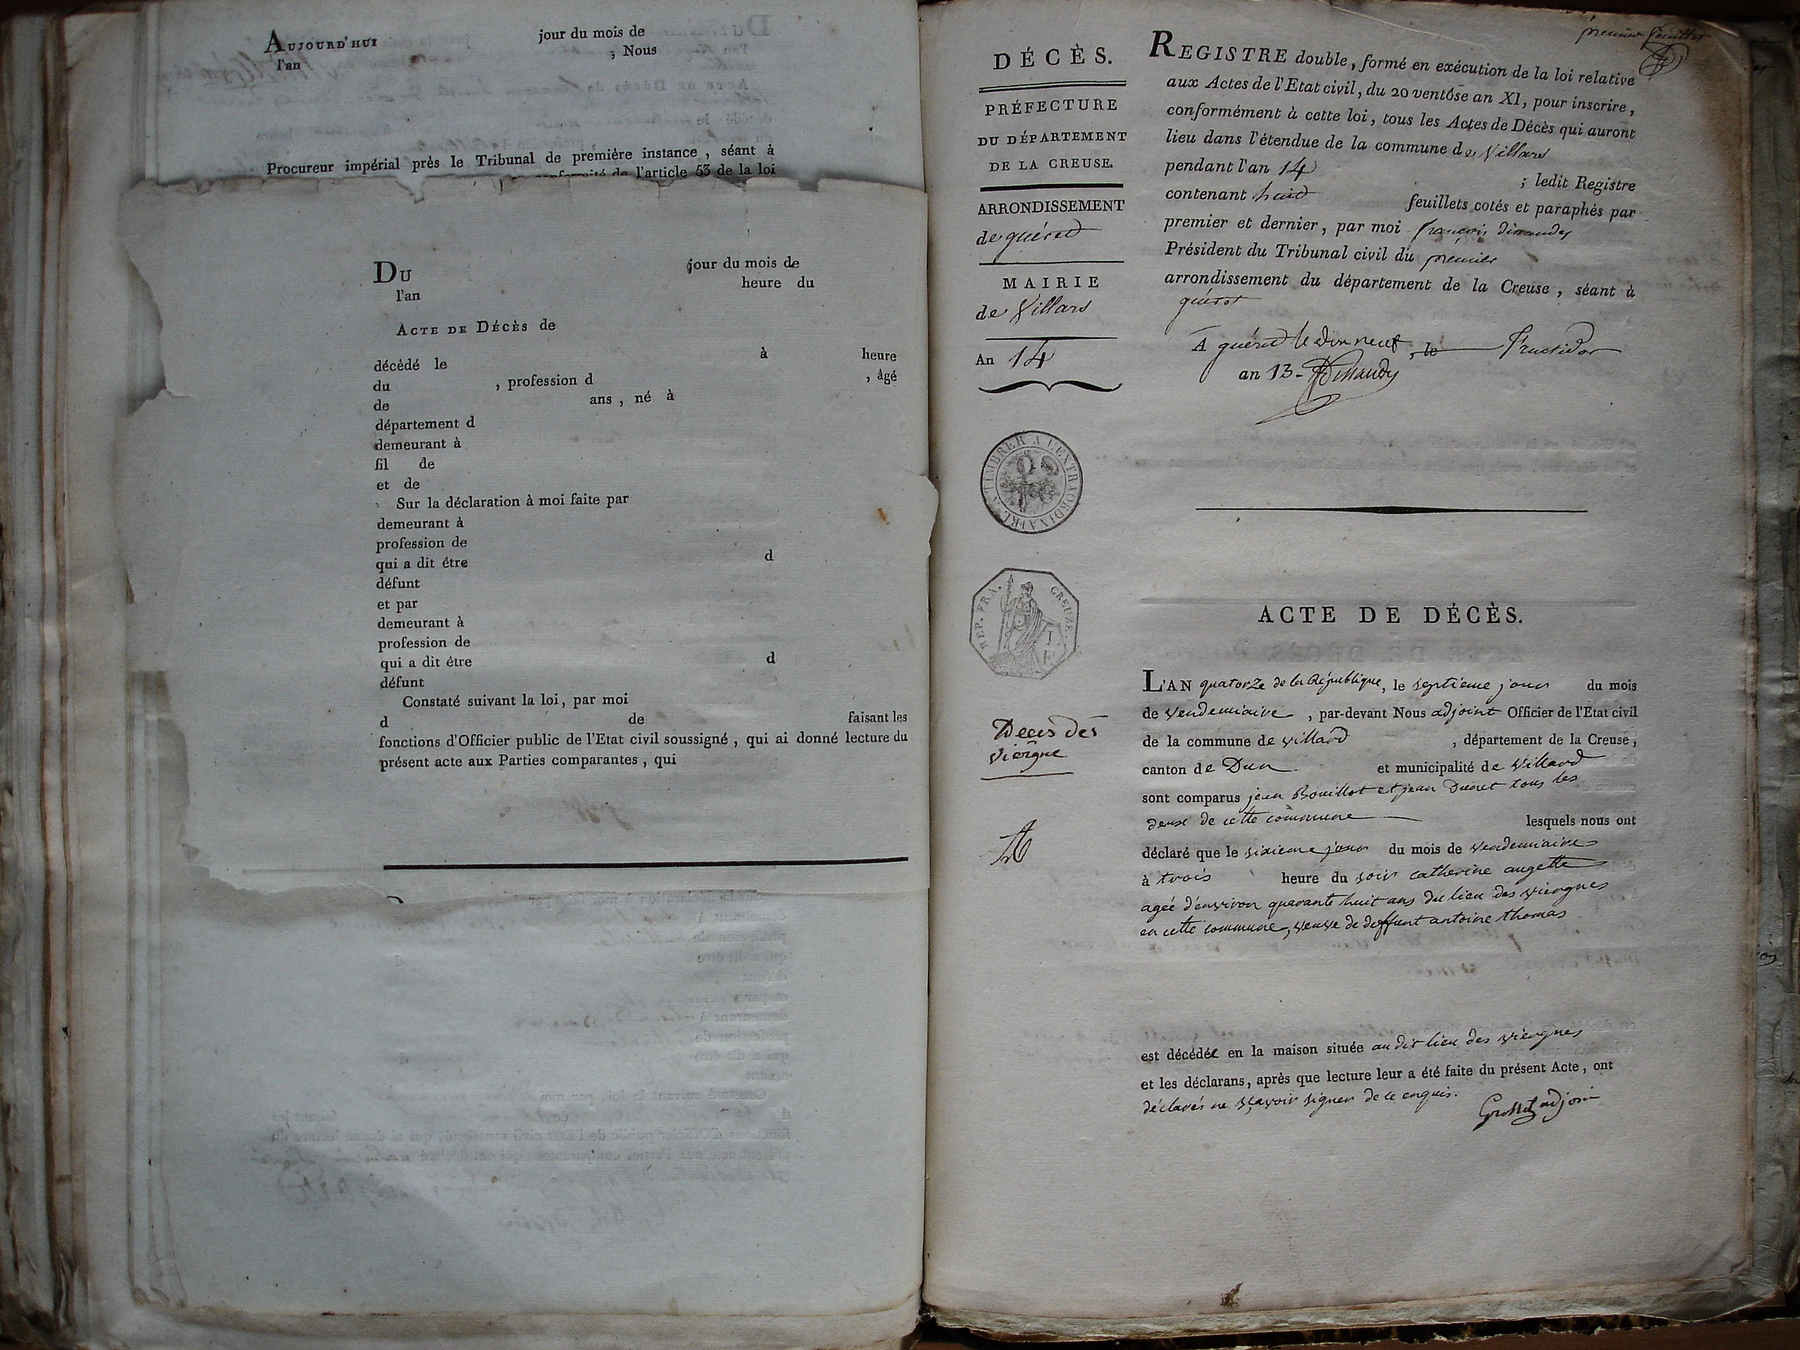 AUJOURD'HUI jour du mois de
l'an ; Nous
Procureur impérial près le Tribunal de première instance , séant à
conformité de l'article 53 de la loi
DU jour du mois de
l'an heure du
ACTE DE DÉCÈS de
décédé le à heure
du , profession d , âgé
de ans , né à
département d
demeurant à
fil de
et de
Sur la déclaration à moi faite par
demeurant à
profession de
qui a dit être d
défunt
et par
demeurant à
profession de
qui a dit être d
défunt
Constaté suivant la loi, par moi
d de faisant les
fonctions d'Officier public de l'Etat civil soussigné , qui ai donné lecture du
présent acte aux Parties comparantes , qui
premier feuillet
DÉCÈS.
PRÉFECTURE
DU DÉPARTEMENT
DE LA CREUSE.
ARRONDISSEMENT
de guéret
MAIRIE
de Villars
An 14
REGISTRE double, formé en exécution de la loi relative
aux Actes de l'Etat civil, du 20 ventôse an XI, pour inscrire,
conformément à cette loi, tous les Actes de Décès qui auront
lieu dans l'étendue de la commune de Villars
pendant l'an 14 ; ledit Registre
contenant huit feuillets cotés et paraphés par
premier et dernier, par moi françois
Président du Tribunal civil du premier
arrondissement du département de la Creuse , séant à
guéret
A guéret le dix neuf , le fructidor
an 13
TIMBRER A L'EXTRAORDINAIRE
REP. FRA. CREUZE.
Deces des
viergne
ACTE DE DÉCÈS.
L'AN quatorze de la République, le septieme jour du mois
de vendemiaire , par-devant Nous adjoint Officier de l'Etat civil
de la commune de villard , département de la Creuse,
canton de Dun et municipalité de villard
sont comparus jean Bouillot et jean Dunet tous les
deux de cette commune lesquels nous ont
déclaré que le sixieme jour du mois de vendemiaire
à trois heure du soir catherine augette
agée d'environ quarante huit ans du lieu des viergnes
en cette commune, veuve de deffunt antoine thomas
est décédée en la maison située au dit lieu des viergnes
et les déclarans, après que lecture leur a été faite du présent Acte , ont
déclarés ne sçavoir signer de ce enquis.
adjoint